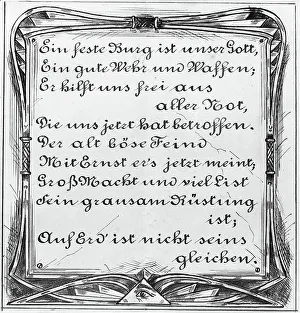 Ein feste Burg ist unser Gott,
Ein gute Wehr und Waffen;
Er hilft uns frei aus
aller Not,
Die uns jetzt hat betroffen.
Der alt böse Feind
Mit Ernst er's jetzt meint;
Groß Macht und viel List
Sein grausam Rüstung
ist;
Auf Erd' ist nicht seins
gleichen.